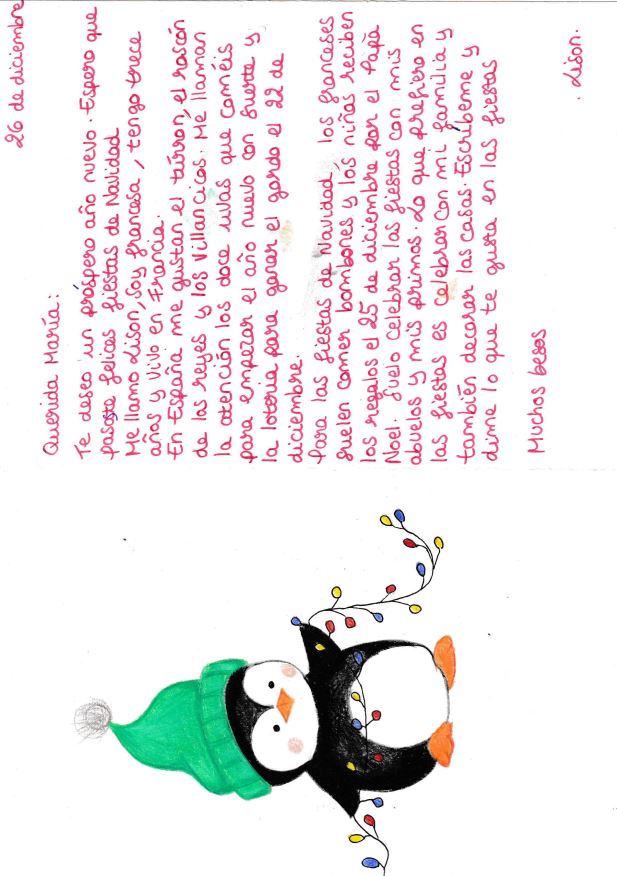 26 de diciembre
Querida María:
Te deseo un próspero año nuevo. Espero que
pasaste felices fiestas de Navidad
Me llamo Lison, soy francesa, tengo trece
años y vivo en Francia.
En España me gustan el túrron, el roscón
de los reyes y los Villancicos. Me llaman
la atención los doce uvas que coméis
para empezar el año nuevo con suerte y
la loteria para ganar el gordo el 22 de
diciembre.
Para las fiestas de Navidad, los franceses
suelen comer bombones y los niñas reciben
los regalos el 25 de diciembre por el Papà
Noel. Suelo celebrar las fiestas con mis
abuelos y mis primos. Lo que prefiero en
las fiestas es celebrar con mi familia y
también decorar las casas. Escríbeme y
dime lo que te gusta en las fiestas
Muchos besos
. Lison.